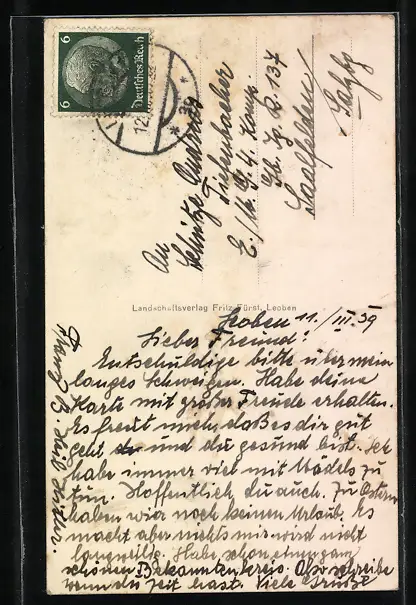 Deutsches Reich
6 6
12.
An
Schütze Andreas
Tiefenbacher
E./M. G. 4. Komp.
Gb. Jg. R. 137
Saalfelden
Salzbg
Landschaftsverlag Fritz Fürst, Leoben
Leoben 11./III. 39
Lieber Freund!
Entschuldige bitte über mein
langes Schweigen. Habe deine
Karte mit großer Freude erhalten.
Es freut mich daß es dir gut
geht und du gesund bist. Ich
habe immer viel mit Mädels zu
tun. Hoffentlich du auch. Zu Ostern
haben wir noch keinen Urlaub. Es
macht aber nichts mir wird nicht
langweilig. Habe schon einen ganz
schönen Bekanntenkreis. Also schreibe
wenn du Zeit hast. Viele Grüße
Franz B. Heil